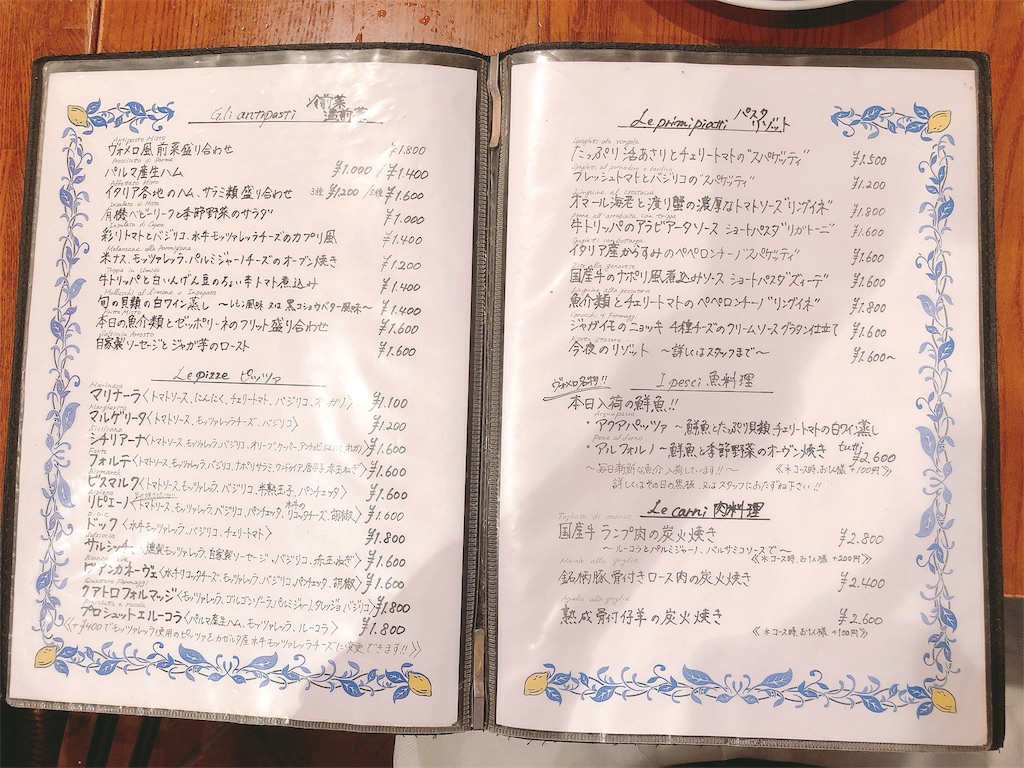 Gli antipasti 冷前菜 温前菜
Antipasto Misto
ヴォメロ風前菜盛り合わせ ¥1.800
Prosciutto di Parma
パルマ産生ハム ¥1.000 / ¥1.400
Affettato Misto
イタリア各地のハム、サラミ類盛り合わせ 3種 ¥1200 / 5種 ¥1.600
Insalata di Mista
有機ベビーリーフと季節野菜のサラダ ¥1.000
Insalata di Capre
彩りトマトとバジリコ、水牛モッツァレッラチーズのカプリ風 ¥1.400
Melanzane alla Parmigiana
米ナス、モッツァレッラ、パルミジャーノチーズのオーブン焼き ¥1200
Trippa in Umido
牛トリッパと白いんげん豆のちょい辛トマト煮込み ¥1.400
旬の貝類の白ワイン蒸し 〜レモン風味 又は 黒コショウバター風味〜 ¥1.400
Fritto Misto
本日の魚介類とゼッポリーネのフリット盛り合わせ ¥1.600
Salsiccia Arrosto
自家製ソーセージとジャガ芋のロースト ¥1.600
Le pizze ピッツァ
Marinara
マリナーラ〈トマトソース、にんにく、チェリートマト、バジリコ、オレガノ〉 ¥1.100
Margherita
マルゲリータ〈トマトソース、モッツァレッラチーズ、バジリコ〉 ¥1.200
Siciliana
シチリアーナ〈トマトソース、モッツァレッラ、バジリコ、オリーブ、ケッパー、アンチョビ、にんにく、オレガノ〉 ¥1.600
Forte
フォルテ〈トマトソース、モッツァレッラ、バジリコ、ナポリサラミ、ウンドイヤ、唐辛子、赤玉ねぎ〉 ¥1.600
Bismarck
ビスマルク〈トマトソース、モッツァレッラ、バジリコ、半熟玉子、パンチェッタ〉 ¥1.600
Ripieno
リピエーノ〈トマトソース、モッツァレッラ、バジリコ、パンチェッタ、水牛のリコッタチーズ、胡椒〉 ¥1.600
D.O.C
ドック〈水牛モッツァレッラ、バジリコ、チェリートマト〉 ¥1.800
サルシッチャ〈燻製モッツァレッラ、自家製ソーセージ、バジリコ、赤玉ねぎ〉 ¥1.600
ビアンカネーヴェ〈水牛リコッタチーズ、モッツァレッラ、バジリコ、パンチェッタ、胡椒〉 ¥1.600
Quattro Formaggi
クアトロフォルマッジ〈モッツァレッラ、ゴルゴンゾーラ、パルミジャーノ、タレッジョ、バジリコ〉 ¥1.800
Prosciutto e rucola
プロシュットエルーコラ〈パルマ産生ハム、モッツァレッラ、ルーコラ〉 ¥1.800
《+¥400でモッツァレッラ使用のピッツァをカゼルタ産水牛モッツァレッラチーズに変更できます!!》
Le primi piatti パスタ リゾット
Spaghetti alle vongole
たっぷり活あさりとチェリートマトの"スパゲッティ" ¥1.500
フレッシュトマトとバジリコの"スパゲッティ" ¥1.200
Linguine ai crostacei
オマール海老と渡り蟹の濃厚なトマトソース"リングイネ" ¥1.800
Penne all'arrabbiata con trippa
牛トリッパのアラビアータソース ショートパスタ"リガトーニ" ¥1.600
Spaghetti con bottarga
イタリア産からすみのペペロンチーノ"スパゲッティ" ¥1.600
国産牛のナポリ風煮込みソース ショートパスタ"ズィーテ" ¥1.600
Linguine alla pescatora
魚介類とチェリートマトのペペロンチーノ"リングイネ" ¥1.800
Gnocchi 4 Formaggi
ジャガイモのニョッキ 4種チーズのクリームソース グラタン仕立て ¥1.600
今夜のリゾット 〜詳しくはスタッフまで〜 ¥1.600〜
ヴォメロ名物!! I pesci 魚料理
本日入荷の鮮魚!!
Acquapazza
・アクアパッツァ 〜鮮魚とたっぷり貝類、チェリートマトの白ワイン蒸し
Pesce al forno
・アルフォルノ〜鮮魚と季節野菜のオーブン焼き tutti ¥2.600
〜毎日新鮮な魚介入荷しています!!〜 《*コース時、お1人様 +100円》
詳しくはその日の黒板、又はスタッフにおたずね下さい!!
Le carni 肉料理
Tagliata di manzo
国産牛ランプ肉の炭火焼き ¥2.800
〜ルーコラとパルミジャーノ、バルサミコソースで〜 《*コース時、お1人様 +200円》
Maiale alla griglia
銘柄豚骨付きロース肉の炭火焼き ¥2.400
Agnello alla griglia
熟成骨付仔羊の炭火焼き ¥2.600
《*コース時、お1人様 +100円》